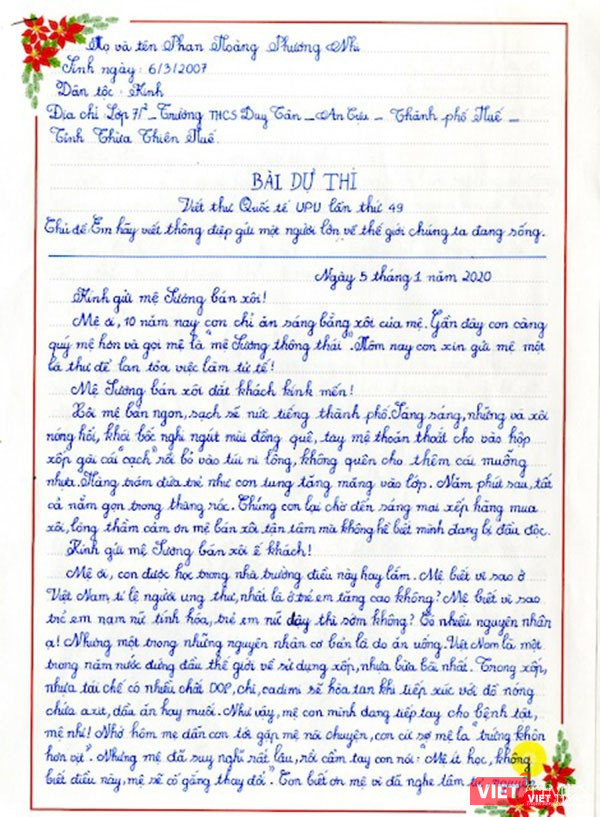 Họ và tên Phan Hoàng Phương Nhi
Sinh ngày: 6/3/2007
Dân tộc: Kinh
Địa chỉ: Lớp 7/² _ Trường THCS Duy Tân _ An Cựu _ Thành phố Huế _
Tỉnh Thừa Thiên Huế.
BÀI DỰ THI
Viết thư Quốc tế UPU lần thứ 49
Chủ đề: Em hãy viết thông điệp gửi một người lớn về thế giới chúng ta đang sống.
Ngày 5 tháng 1 năm 2020
Kính gửi mệ Sương bán xôi!
Mệ ơi, 10 năm nay con chỉ ăn sáng bằng xôi của mệ. Gần đây con càng
quý mệ hơn và gọi mệ là mệ Sương "thông thái". Hôm nay con xin gửi mệ một
lá thư để lan tỏa việc làm tử tế!
Mệ Sương bán xôi đắt khách kính mến!
Xôi mệ bán ngon, sạch sẽ nức tiếng thành phố. Sáng sáng, những vá xôi
nóng hổi, khói bốc nghi ngút mùi đồng quê, tay mệ thoăn thoắt cho vào hộp
xốp gài cái "cạch" rồi bỏ vào túi ni lông, không quên cho thêm cái muỗng
nhựa. Hàng trăm đứa trẻ như con tung tăng mang vào lớp. Năm phút sau, tất
cả nằm gọn trong thùng rác. Chúng con lại chờ đến sáng mai xếp hàng mua
xôi, lòng thầm cảm ơn mệ bán xôi tận tâm mà không hề biết mình đang bị đầu độc.
Kính gửi mệ Sương bán xôi ế khách!
Mệ ơi, con được học trong nhà trường điều này hay lắm. Mệ biết vì sao ở
Việt Nam, tỉ lệ người ung thư, nhất là ở trẻ em tăng cao không? Mệ biết vì sao
trẻ em nam nữ tính hóa, trẻ em nữ dậy thì sớm không? Có nhiều nguyên nhân
ạ! Nhưng một trong những nguyên nhân cơ bản là do ăn uống. Việt Nam là một
trong năm nước đứng đầu thế giới về sử dụng xốp, nhựa bừa bãi nhất. Trong xốp,
nhựa tái chế có nhiều chất DOP, chì, cadimi sẽ hòa tan khi tiếp xúc với đồ nóng
chứa axit, dầu ăn hay muối. Như vậy, mệ con mình đang tiếp tay cho bệnh tật,
mệ nhỉ! Nhớ hôm mẹ dẫn con tới gặp mệ nói chuyện, con cứ sợ mệ la "trứng khôn
hơn vịt". Nhưng mệ đã suy nghĩ rất lâu, rồi cầm tay con nói: "Mệ ít học, không
biết điều này, mệ sẽ cố gắng thay đổi". Con biết ơn mệ vì đã nghe tâm tư
VIỆT
VIỆT